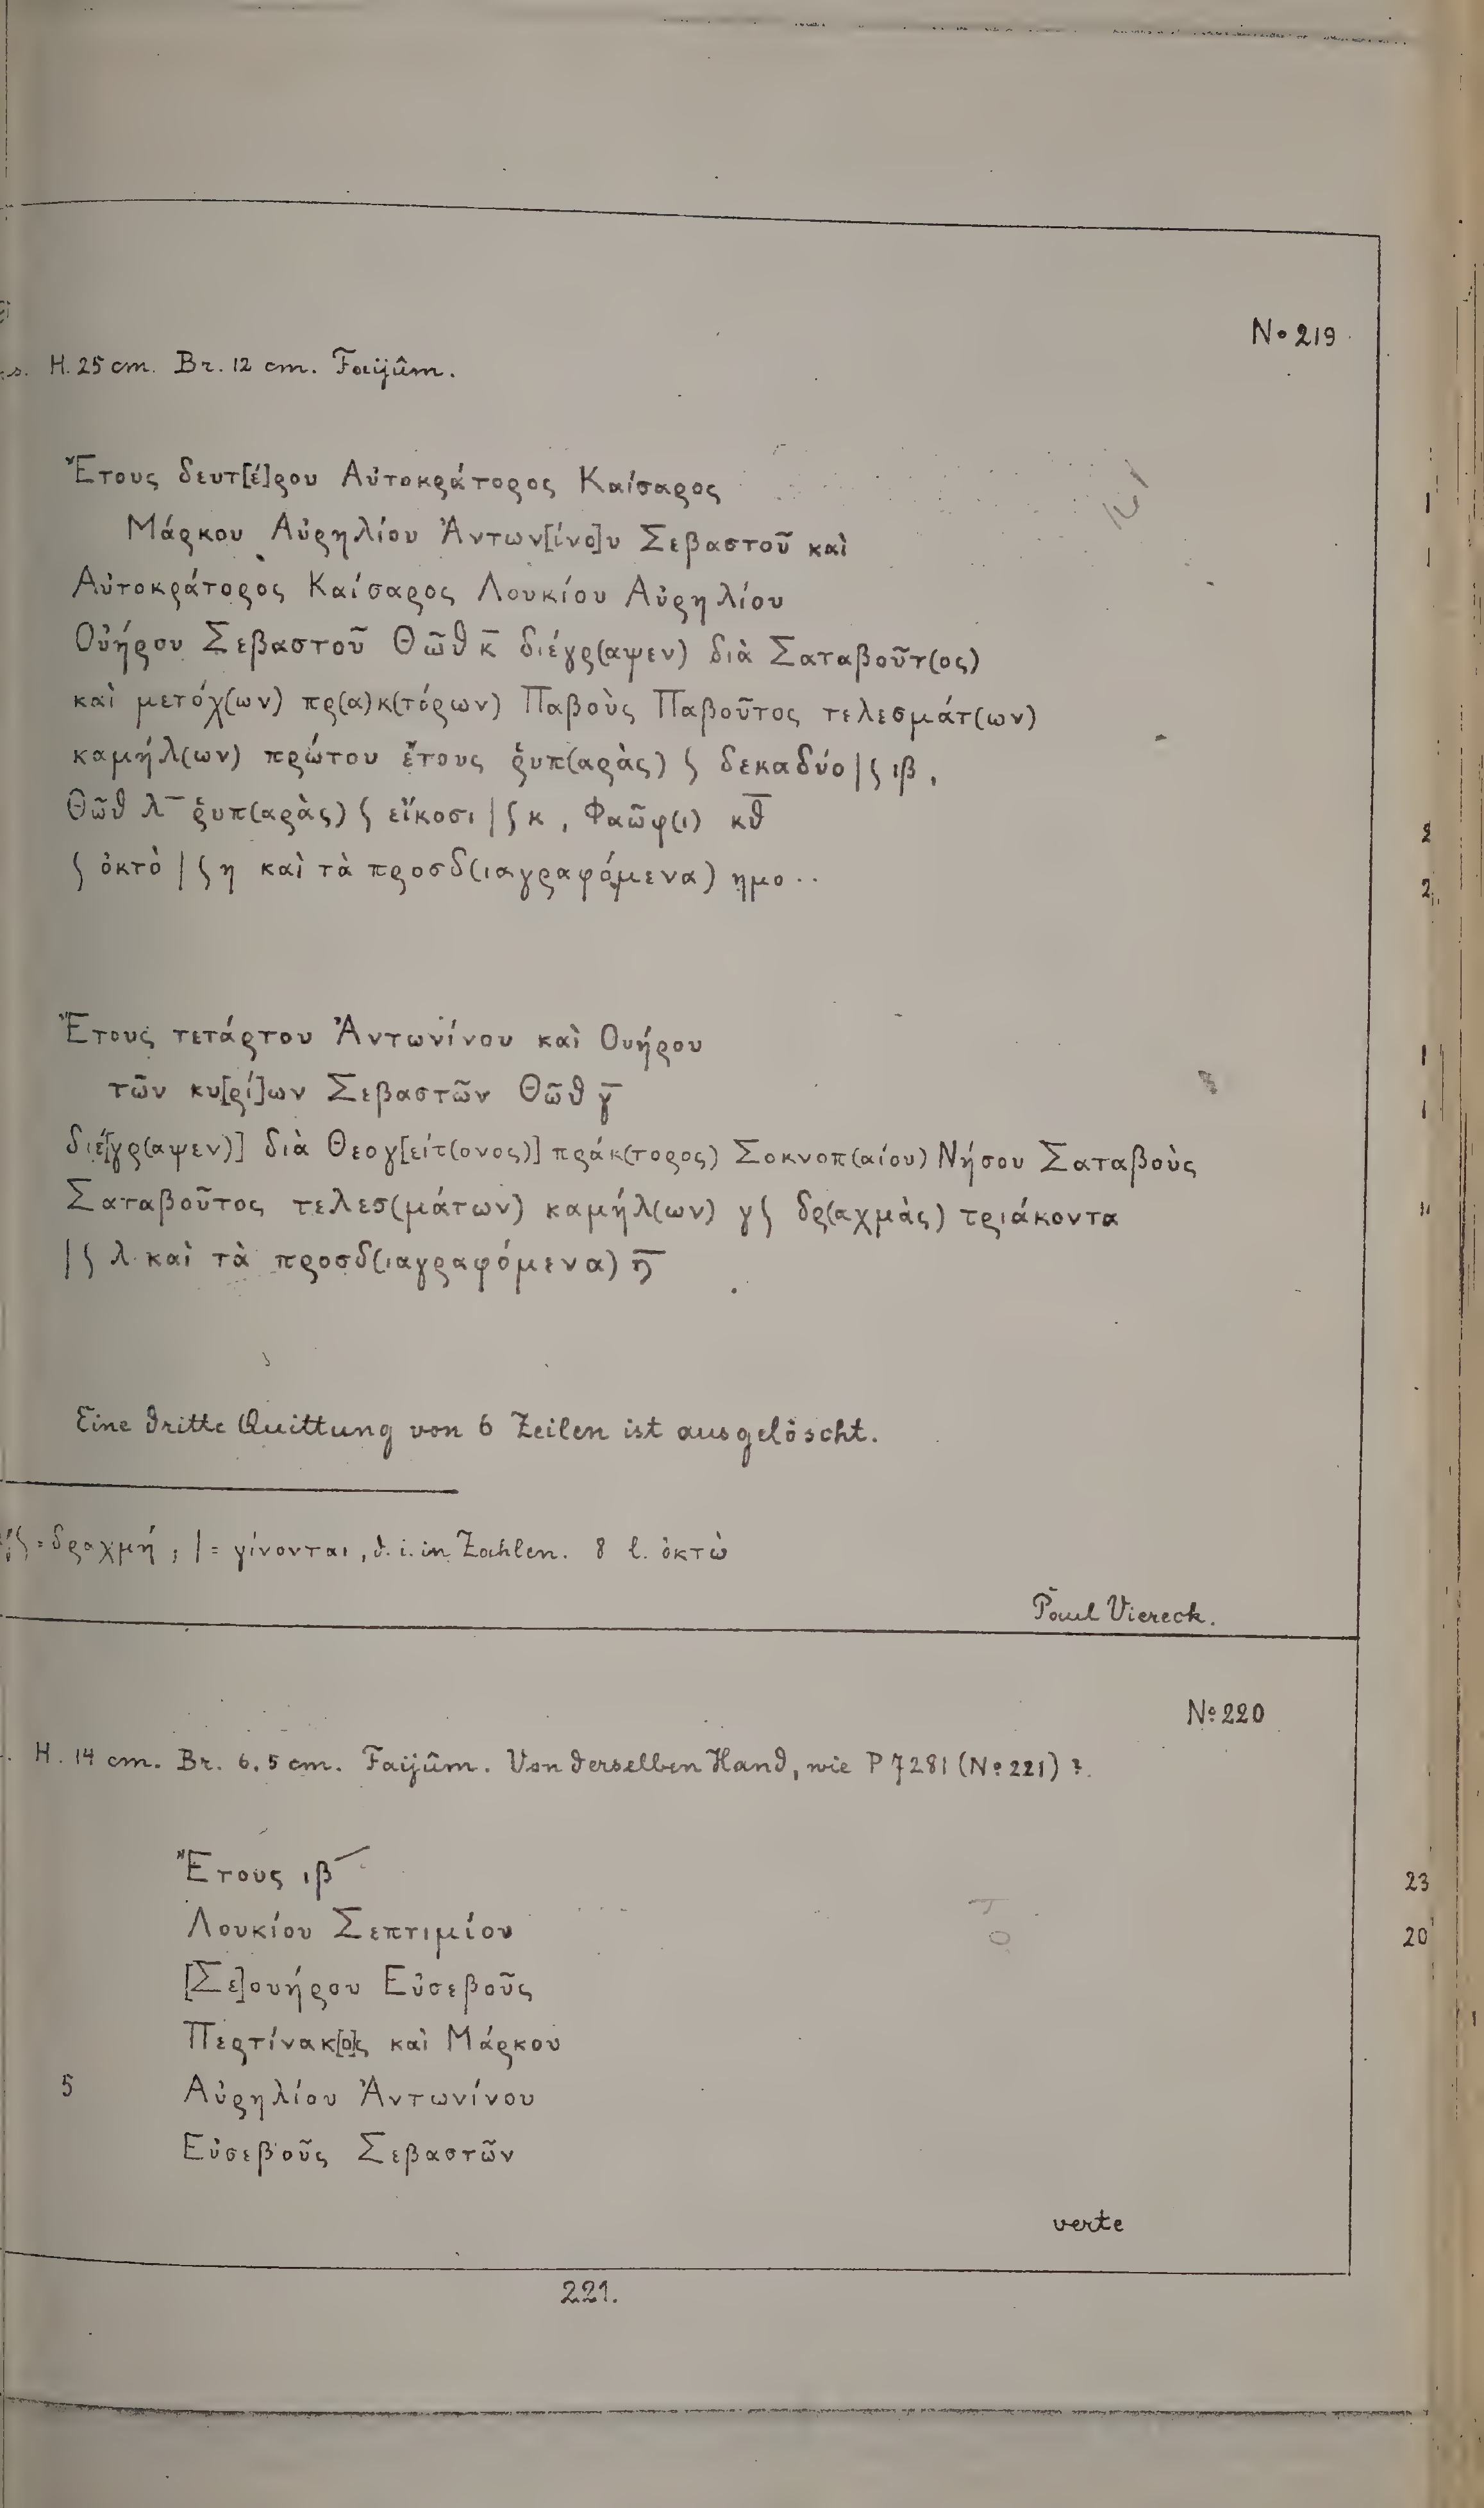 No 219
H. 25 cm. Br. 12 cm. Faijûm.
Ἔτους δευτ[έ]ρου Αὐτοκράτορος Καίσαρος
Μάρκου Αὐρηλίου Ἀντων[ίνο]υ Σεβαστοῦ καὶ
Αὐτοκράτορος Καίσαρος Λουκίου Αὐρηλίου
Οὐήρου Σεβαστοῦ Θῶθ κ̅ διέγρ(αψεν) διὰ Σαταβοῦτ(ος)
καὶ μετόχ(ων) πρ(α)κ(τόρων) Παβοὺς Παβοῦτος τελεσμάτ(ων)
καμήλ(ων) πρώτου ἔτους ῥυπ(αρὰς) ʃ δεκαδύο | ʃ ιβ,
Θῶθ λ̅ ῥυπ(αρὰς) ʃ εἴκοσι | ʃ κ, Φαῶφ(ι) κ̅θ̅
ʃ ὀκτὸ | ʃ η καὶ τὰ προσδ(ιαγραφόμενα) ημο··
Ἔτους τετάρτου Ἀντωνίνου καὶ Ουήρου
τῶν κυ[ρί]ων Σεβαστῶν Θῶθ γ̅
διέ[γρ(αψεν)] διὰ Θεογ[είτ(ονος)] πράκ(τορος) Σοκνοπ(αίου) Νήσου Σαταβοὺς
Σαταβοῦτος τελεσ(μάτων) καμήλ(ων) γʃ δρ(αχμὰς) τριάκοντα
| ʃ λ καὶ τὰ προσδ(ιαγραφόμενα) η̅
Eine dritte Quittung von 6 Zeilen ist ausgelöscht.
ʃ = δραχμή; | = γίνονται, d. i. in Zahlen. 8 l. ὀκτὼ
Paul Viereck.
No 220
H. 14 cm. Br. 6,5 cm. Faijûm. Von derselben Hand, wie P 7281 (No 221)?
Ἔτους ιβ
Λουκίου Σεπτιμίου
[Σε]ουήρου Εὐσεβοῦς
Περτίνακ[ο]ς καὶ Μάρκου
5 Αὐρηλίου Ἀντωνίνου
Εὐσεβοῦς Σεβαστῶν
verte
221.
23
20